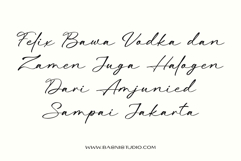 Felix Bawa Vodka dan
Zamen Juga Halogen
Dari Amjunied
Sampai Jakarta
WWW.BABNBSTUDIO.COM